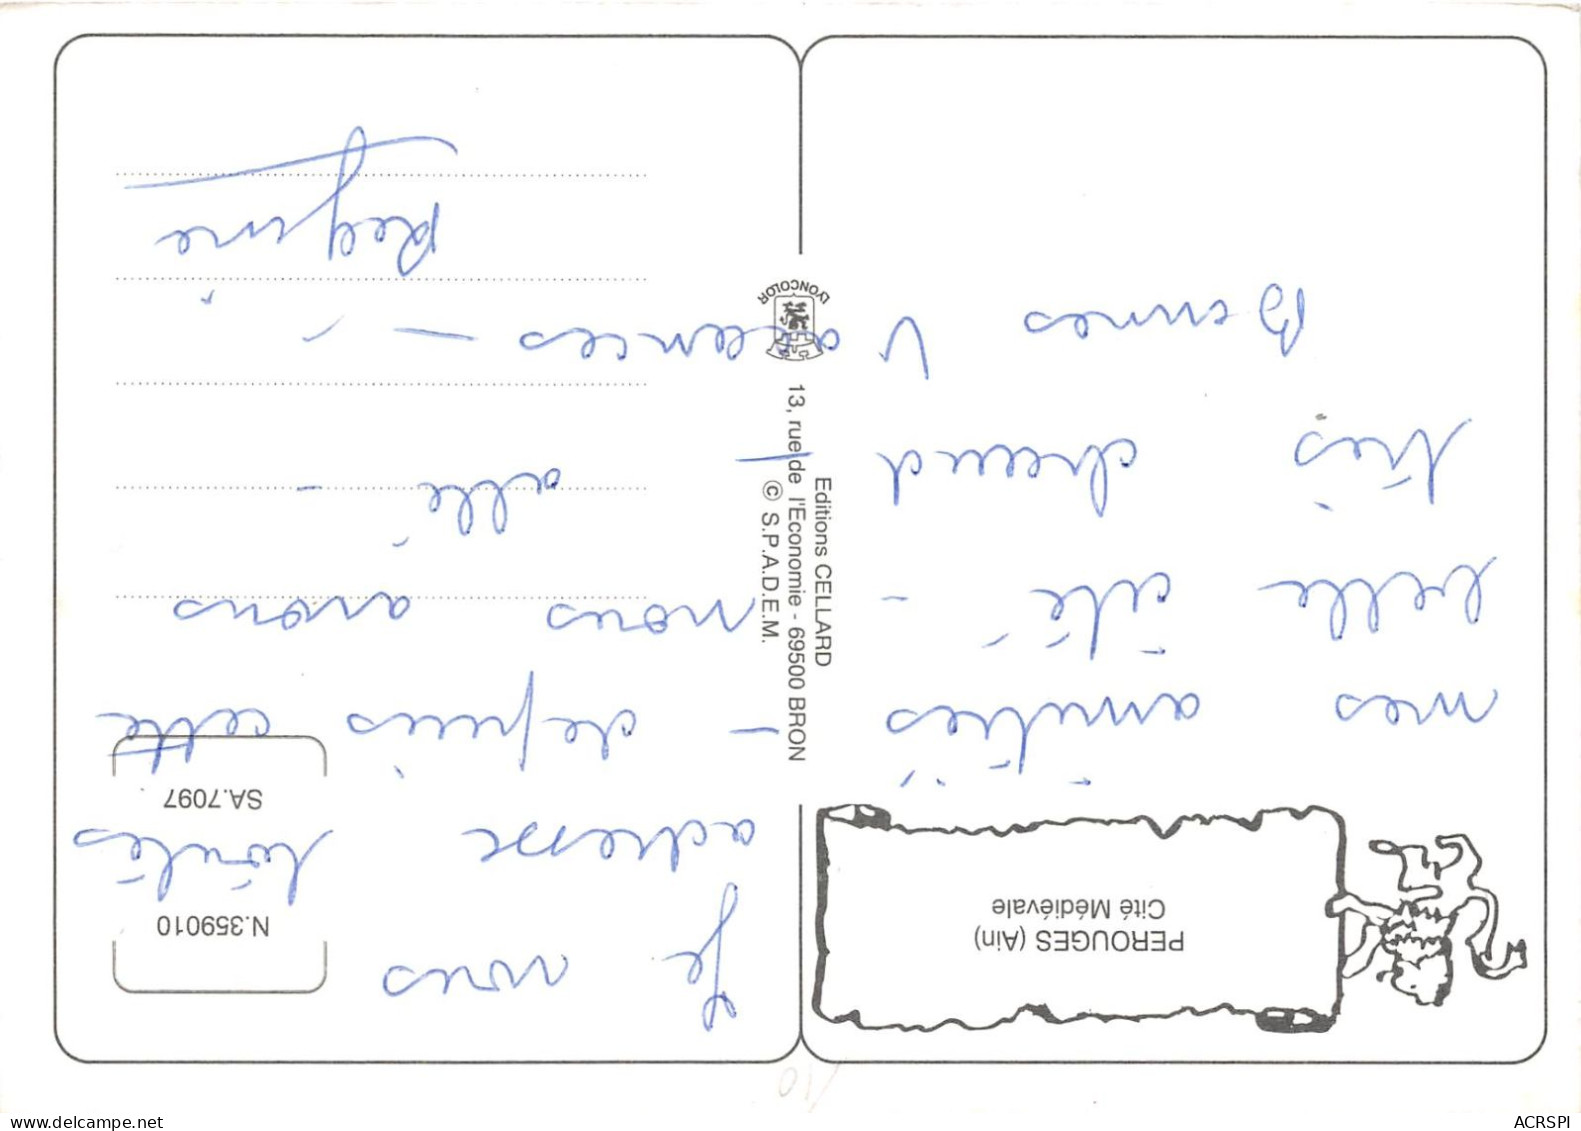 PEROUGES (Ain)
Cité Médiévale
Je vous
adresse toutes
mes amitiés - depuis cette
belle cité - nous avons
très chaud / allé -
Bonnes Vacances -
Regine
N.359010
SA.7097
Editions CELLARD
13, rue de l'Economie - 69500 BRON
© S.P.A.D.E.M.
LYONCOLOR
ACRSPI